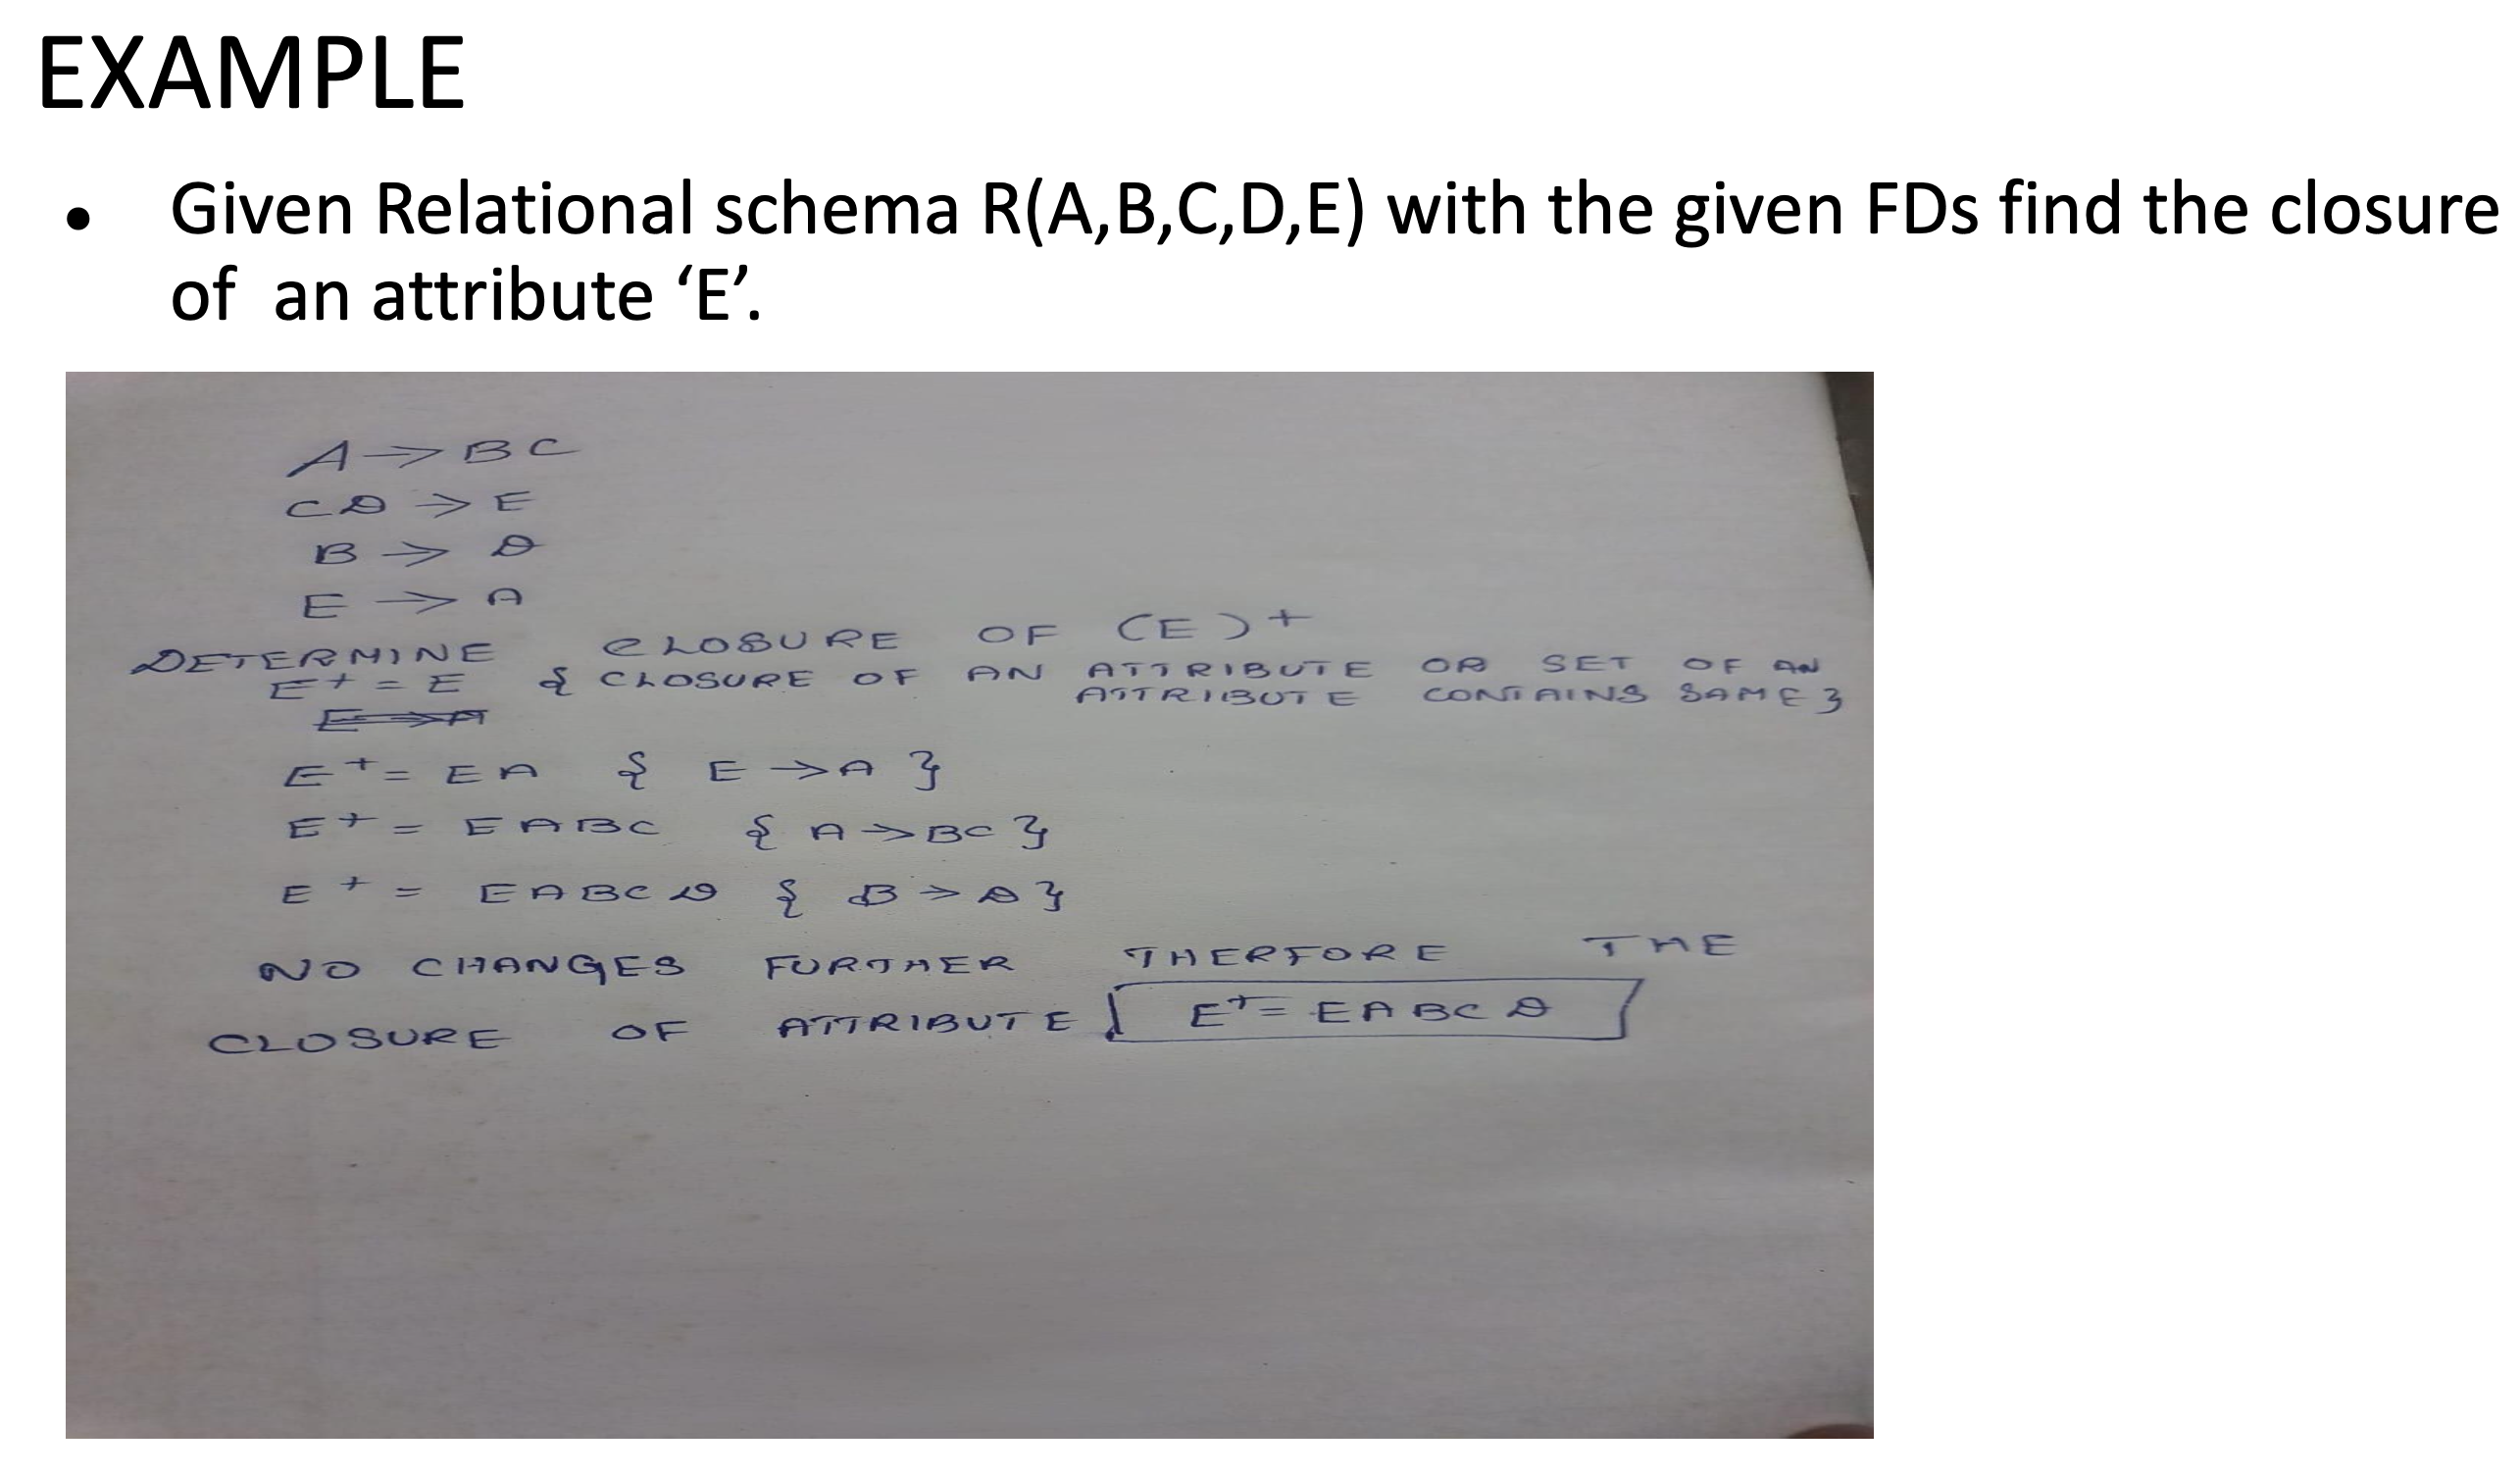 EXAMPLE
• Given Relational schema R(A,B,C,D,E) with the given FDs find the closure
of an attribute ‘E’.
A → BC
CD → E
B → D
E → A
DETERMINE CLOSURE OF (E)+
E+ = E { CLOSURE OF AN ATTRIBUTE OR SET OF AN
ATTRIBUTE CONTAINS SAME }
E → A
E+ = EA { E → A }
E+ = EABC { A → BC }
E+ = EABCD { B → D }
NO CHANGES FURTHER THERFORE THE
CLOSURE OF ATTRIBUTE E+ = EABCD